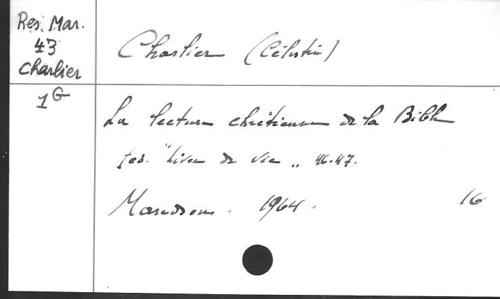 Res. Mar.
43
Charlier
1G
Charlier (Célestin)
La lecture chrétienne de la Bible
"Livre de vie" 46.47.
Maredsous. 1964. 16